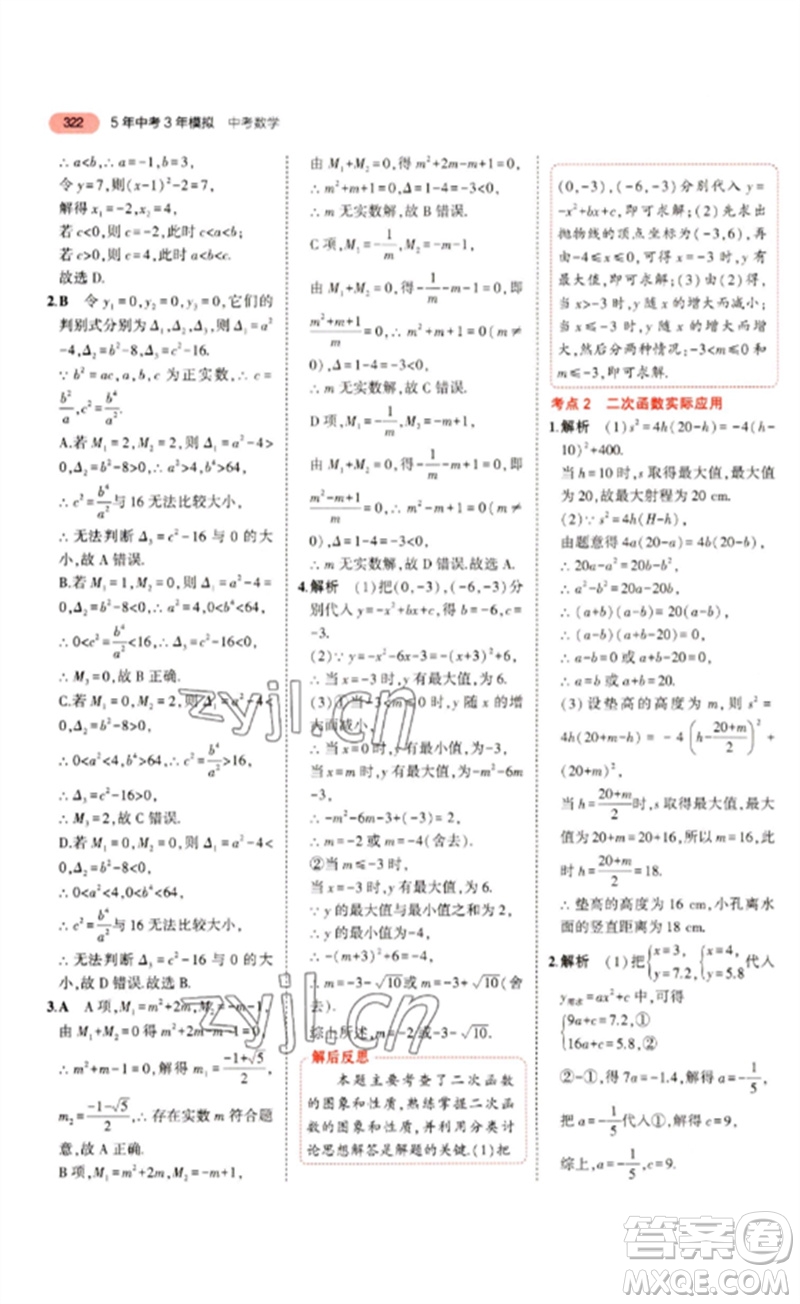 322 5年中考3年模拟 中考数学
∴ a<b,∴ a=-1,b=3,
令 y=7,则(x-1)²-2=7,
解得 x₁=-2,x₂=4,
若 c<0,则 c=-2,此时 c<a<b;
若 c>0,则 c=4,此时 a<b<c.
故选 D.
2.B 令 y₁=0,y₂=0,y₃=0,它们的
判别式分别为 Δ₁,Δ₂,Δ₃,则 Δ₁=a²
-4,Δ₂=b²-8,Δ₃=c²-16.
∵ b²=ac,a,b,c 为正实数,∴ c=
b²/a,c²=b⁴/a².
A.若 M₁=2,M₂=2,则 Δ₁=a²-4>
0,Δ₂=b²-8>0,∴ a²>4,b⁴>64,
∴ c²=b⁴/a²与 16 无法比较大小,
∴ 无法判断 Δ₃=c²-16 与 0 的大
小,故 A 错误.
B.若 M₁=1,M₂=0,则 Δ₁=a²-4=
0,Δ₂=b²-8<0,∴ a²=4,0<b⁴<64,
∴ 0<c²=b⁴/a²<16,∴ Δ₃=c²-16<0,
∴ M₃=0,故 B 正确.
C.若 M₁=0,M₂=2,则 Δ₁=a²-4<
0,Δ₂=b²-8>0,
∴ 0<a²<4,b⁴>64,∴ c²=b⁴/a²>16,
∴ Δ₃=c²-16>0,
∴ M₃=2,故 C 错误.
D.若 M₁=0,M₂=0,则 Δ₁=a²-4<
0,Δ₂=b²-8<0,
∴ 0<a²<4,0<b⁴<64,
∴ c²=b⁴/a²与 16 无法比较大小,
∴ 无法判断 Δ₃=c²-16 与 0 的大
小,故 D 错误.故选 B.
3.A A 项,M₁=m²+2m,M₂=-m-1,
由 M₁+M₂=0 得 m²+2m-m-1=0,
∴ m²+m-1=0,解得 m₁=(-1+√5)/2,
m₂=(-1-√5)/2,∴ 存在实数 m 符合题
意,故 A 正确.
B 项,M₁=m²+2m,M₂=-m+1,
由 M₁+M₂=0,得 m²+2m-m+1=0,
∴ m²+m+1=0,∴ Δ=1-4=-3<0,
∴ m 无实数解,故 B 错误.
C 项,M₁=-1/m,M₂=-m-1,
由 M₁+M₂=0,得-1/m-m-1=0,即
(m²+m+1)/m=0,∴ m²+m+1=0(m≠
0),Δ=1-4=-3<0,
∴ m 无实数解,故 C 错误.
D 项,M₁=-1/m,M₂=-m+1,
由 M₁+M₂=0,得-1/m-m+1=0,即
(m²-m+1)/m=0,∴ m²-m+1=0(m≠
0),Δ=1-4=-3<0,
∴ m 无实数解,故 D 错误.故选 A.
4.解析 (1)把(0,-3),(-6,-3)分
别代入 y=-x²+bx+c,得 b=-6,c=
-3.
(2)∵ y=-x²-6x-3=-(x+3)²+6,
∴ 当 x=-3 时,y 有最大值,为 6.
(3)①当-3<m≤0 时,y 随 x 的增
大而减小,
∴ 当 x=0 时,y 有最小值,为-3,
当 x=m 时,y 有最大值,为-m²-6m
-3,
∴ -m²-6m-3+(-3)=2,
∴ m=-2 或 m=-4(舍去).
②当 m≤-3 时,
当 x=-3 时,y 有最大值,为 6.
∵ y 的最大值与最小值之和为 2,
∴ y 的最小值为-4,
∴ -(m+3)²+6=-4,
∴ m=-3-√10或 m=-3+√10(舍
去).
综上所述,m=-2 或 m=-3-√10.
解后反思
本题主要考查了二次函数
的图象和性质,熟练掌握二次函
数的图象和性质,并利用分类讨
论思想解答是解题的关键.(1)把
(0,-3),(-6,-3)分别代入 y=
-x²+bx+c,即可求解;(2)先求出
抛物线的顶点坐标为(-3,6),再
由-4≤x≤0,可得 x=-3 时,y 有
最大值,即可求解;(3)由题意得
当 x>-3 时,y 随 x 的增大而减小;
当 x≤-3 时,y 随 x 的增大而增
大,然后分两种情况:-3<m≤0 和
m≤-3,即可求解.
考点 2 二次函数实际应用
1.解析 (1)s²=4h(20-h)=-4(h-
10)²+400.
当 h=10 时,s 取得最大值,最大
值为 20,故最大射程为 20 cm.
(2)∵ s²=4h(H-h),
由题意得 4a(20-a)=4b(20-b),
∴ 20a-a²=20b-b²,
∴ (a+b)(a-b)=20(a-b),
∴ (a-b)(a+b-20)=0,
∴ a-b=0 或 a+b-20=0,
∴ a=b 或 a+b=20.
(3)设垫高的高度为 m,则 s²=
4h(20+m-h)=-4(h-(20+m)/2)²+
(20+m)²,
当 h=(20+m)/2时,s 取得最大值,最大
值为 20+m=20+16,所以 m=16,此
时 h=(20+m)/2=18.
∴ 垫高的高度为 16 cm,小孔离水
面的竖直距离为 18 cm.
2.解析 (1)把{x=3, y=7.2,{x=4, y=5.8代入
y=ax²+c 中,可得
{9a+c=7.2,①
16a+c=5.8,②
②-①,得 7a=-1.4,解得 a=-1/5,
把 a=-1/5代入①,得 c=9,
综上,a=-1/5,c=9.
zyjl.cn
zyjl.cn
答案圈
MXQE.COM